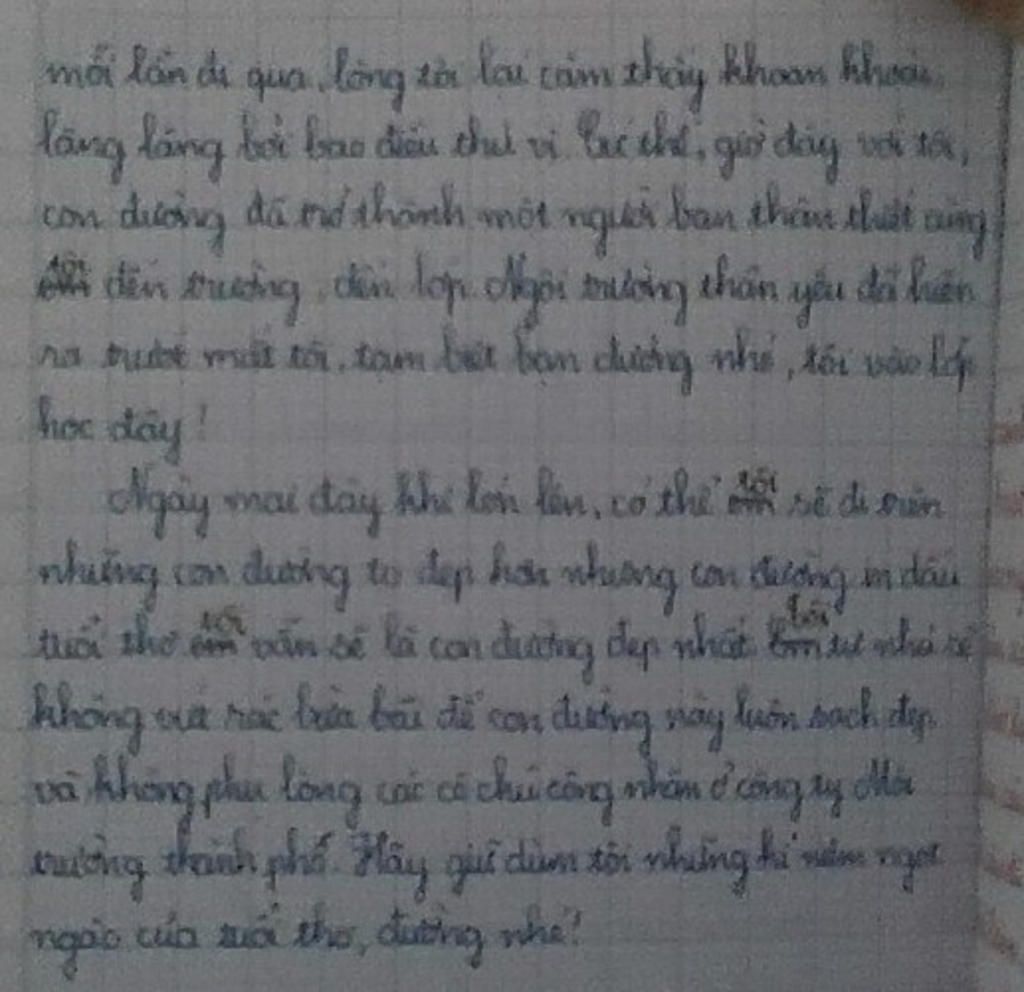 mỗi lần đi qua, lòng tôi lại cảm thấy khoan khoái,
lâng lâng bởi bao điều thú vị. Cứ thế, giờ đây với tôi,
con đường đã trở thành một người bạn thân thiết cùng
tôi đến trường, đến lớp. Ngôi trường thân yêu đã hiện
ra trước mắt tôi, tạm biệt bạn đường nhé, tôi vào lớp
học đây!
Ngày mai đây khi lớn lên, có thể tôi sẽ đi trên
những con đường to đẹp hơn nhưng con đường in dấu
tuổi thơ tôi vẫn sẽ là con đường đẹp nhất. tôi tự nhủ sẽ
không vứt rác bừa bãi để con đường này luôn sạch đẹp
và không phụ lòng các cô chú công nhân ở công ty Môi
trường thành phố. Hãy giữ dùm tôi những kỉ niệm ngọt
ngào của tuổi thơ, đường nhé!